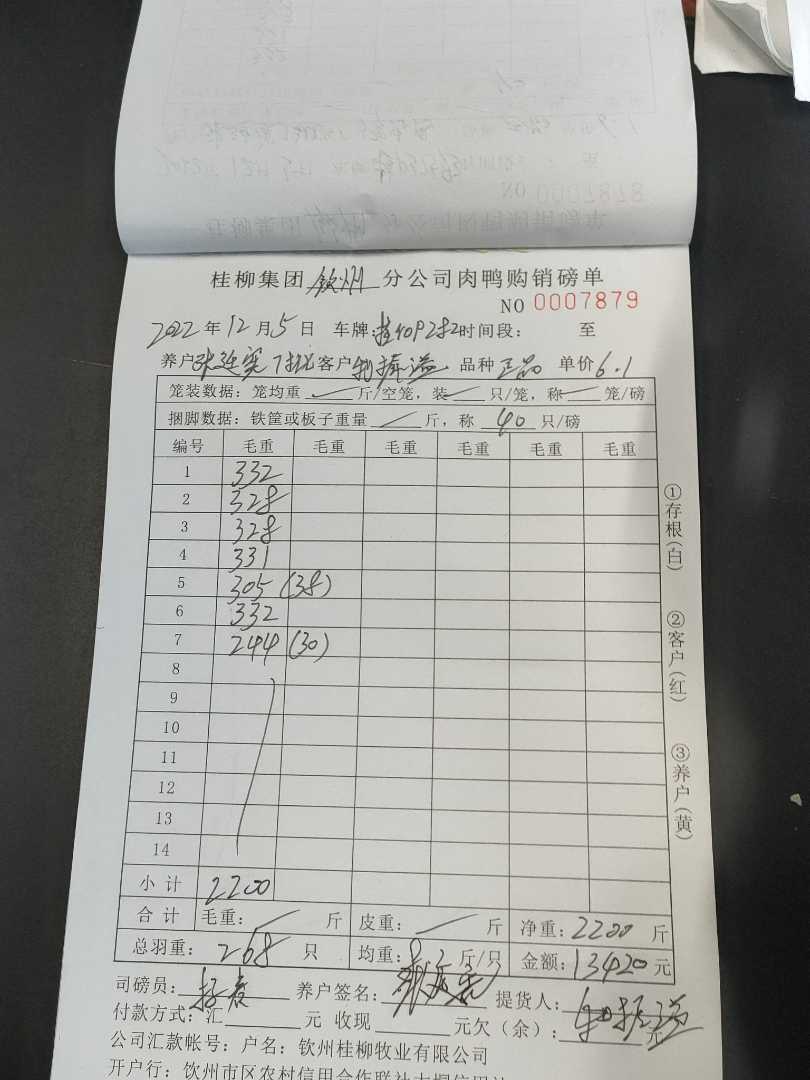 桂柳集团 钦州 分公司肉鸭购销磅单
NO 0007879
2022年12月5日 车牌: 时间段: 至
养户 张延宾 客户 品种 正品 单价 6.1
笼装数据: 笼均重 斤/空笼, 装 只/笼, 称 笼/磅
捆脚数据: 铁筐或板子重量 斤, 称 40 只/磅
编号 毛重 毛重 毛重 毛重 毛重 毛重
1 332
2 328
3 328
4 331
5 305 (38)
6 332
7 244 (30)
8
9
10
11
12
13
14
小计 2200
合计 毛重: 斤 皮重: 斤 净重: 2200 斤
总羽重: 268 只 均重: 8.2 斤/只 金额: 13420 元
司磅员: 养户签名: 提货人:
付款方式: 汇 元 收现 元欠(余): 元
公司汇款帐号: 户名: 钦州桂柳牧业有限公司
开户行: 钦州市区农村信用合作联社大垌信用社
①存根(白)
②客户(红)
③养户(黄)